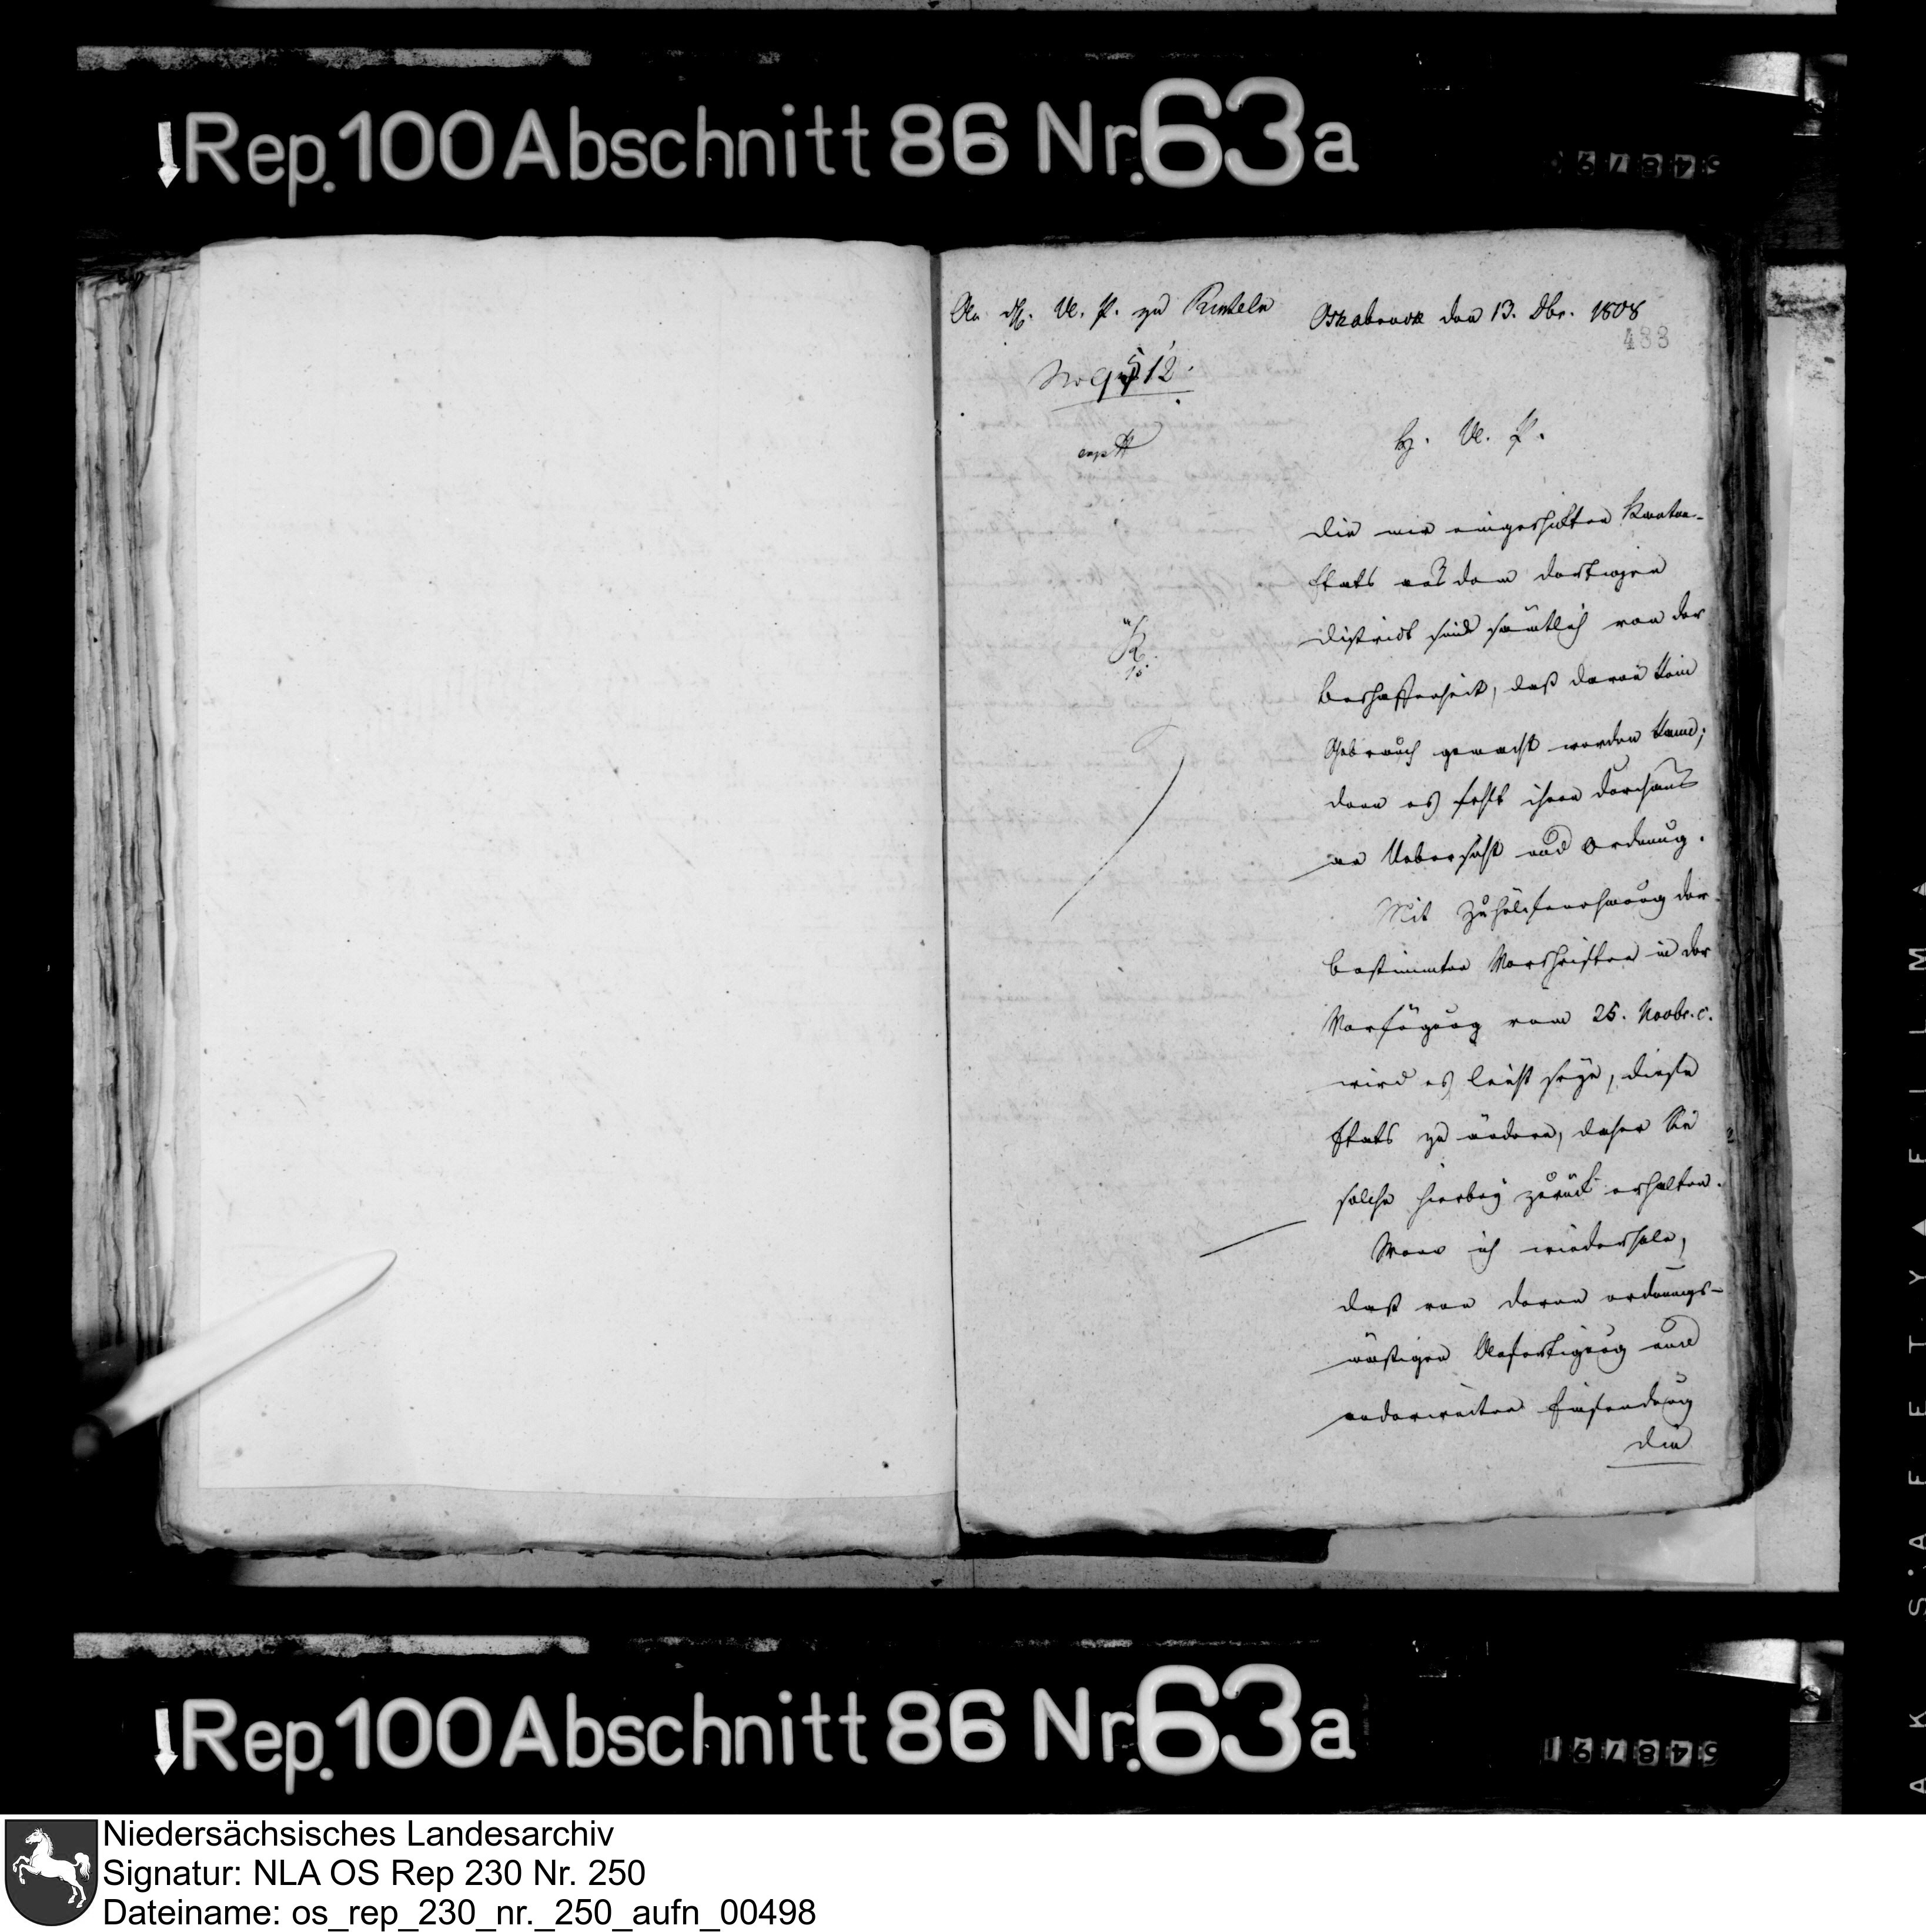 Rep. 100 Abschnitt 86 Nr. 63a
An H. U. P. zu Rinteln
Osnabrück den 13. Dbr. 1808
433
No 9512.
H. U. P.
exp
Die mir eingeschikten Kanton-
Etats aus dem dortigen
District sind sämtlich von der
Beschaffenheit, daß davon kein
Gebrauch gemacht werden kann;
denn es fehlt ihnen durchaus
an Uebersicht und Ordnung.
Mit Zuhülfenehmung der
bestimmten Vorschriften in der
Verfügung vom 25. Novbr. c.
wird es leicht seyn, diese
Etats zu ändern, daher Sie
solche hierbey zurück erhalten.
Wenn ich wiederhole,
daß von deren ordnungs-
mäßigen Anfertigung und
anderweiten Einsendung
die
Rep. 100 Abschnitt 86 Nr. 63a
Niedersächsisches Landesarchiv
Signatur: NLA OS Rep 230 Nr. 250
Dateiname: os_rep_230_nr._250_aufn_00498